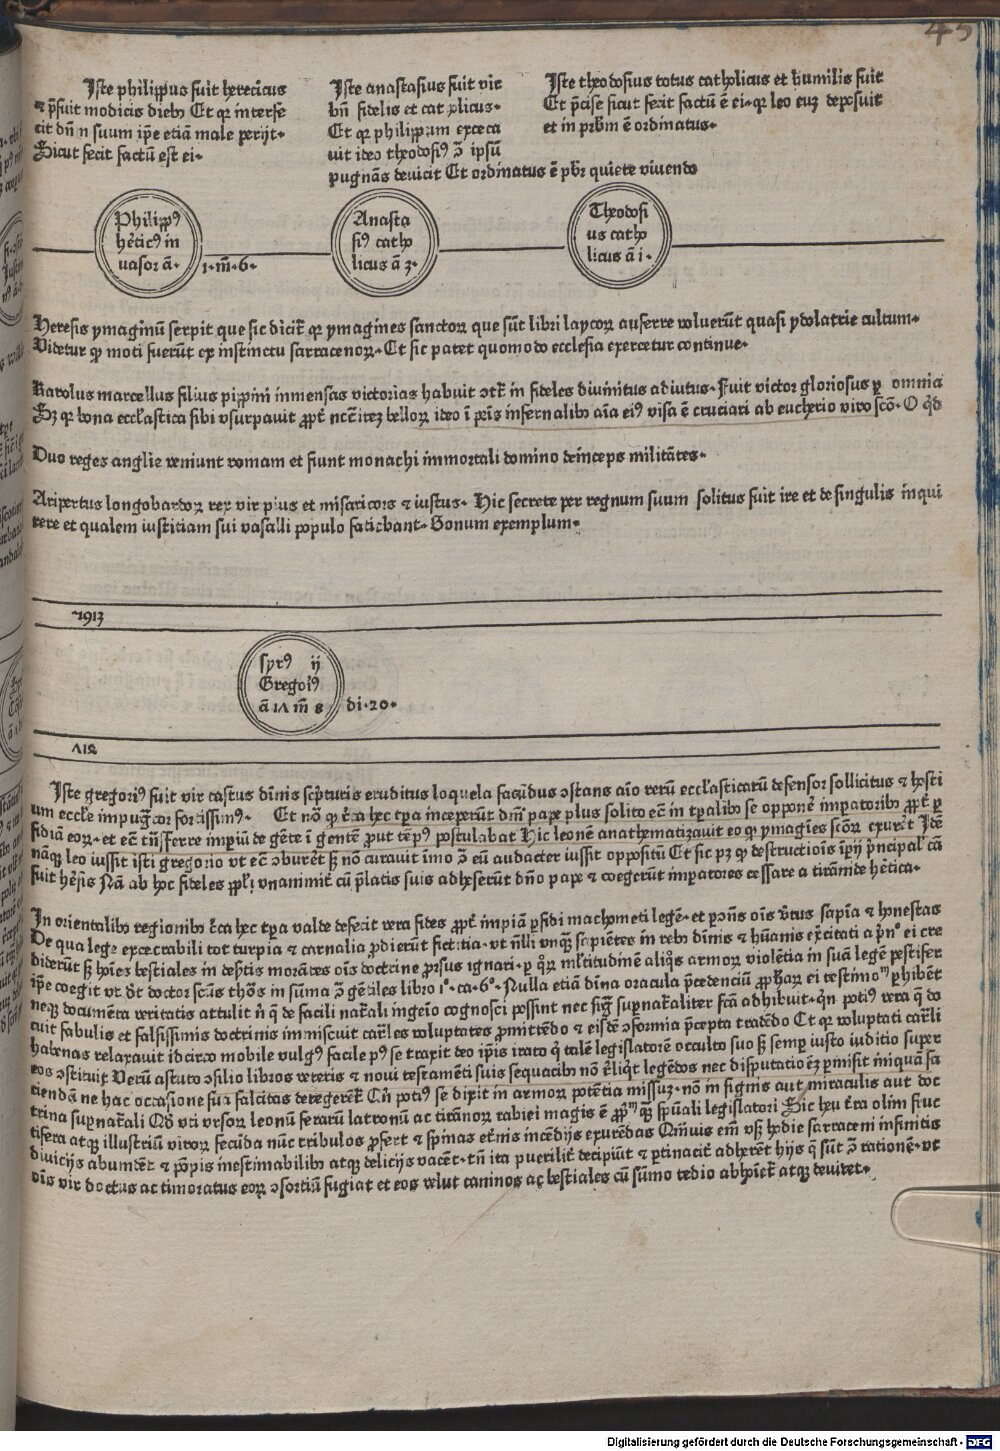 45
Iste philippus fuit hereticus
⁊ p̄fuit modicis dieb9 Et qꝛ interfe
cit dn̄ n suum ip̄e etiā male perijt·
Sicut fecit factū est ei·
Iste anastasius fuit vir
bn̄ fidelis et catholicus·
Et qꝛ philippum execa
uit ideo theodosi9 ↄ̄ ipsū
pugnās deuicit Et ordinatus ē pb̄r quiete viuendo
Iste theodosius totus catholicus et humilis fuit
Et p̄cise sicut fecit factū ē ei·qꝛ leo euꝫ deposuit
et in pr̄bm ē ordinatus·
Philipp9
hētic9 in
uasor ā·
1·m̄·6·
Anasta
si9 catho
licus ā 3·
Theodosi
us catho
licus ā 1·
Heresis ymaginū serpit que sic dicit̄ qꝛ ymagines sanctoꝝ que sūt libri laycoꝝ auferre voluerūt quasi ydolatrie cultum·
Videtur ꝙ moti fuerūt ex instinctu sarracenoꝝ·Et sic patet quomodo ecclesia exercetur continue·
Karolus marcellus filius pippini inmensas victorias habuit ↄtr̄ infideles diuinitus adiutus·Fuit victor gloriosus ꝑ omnia
Sꝫ qꝛ bona eccl̄astica sibi vsurpauit ꝓpt̄ nc̄c̄iteꝫ belloꝝ ideo ī pēis infernalib9 aīa ei9 visa ē cruciari ab eucherio viro scō·O qd̄
Duo reges anglie veniunt romam et fiunt monachi immortali domino deinceps militātes·
Aripertus longobardoꝝ rex vir pius et misaricors ⁊ iustus· Hic secrete per regnum suum solitus fuit ire et de singulis inqui
rere et qualem iustitiam sui vasalli populo faciebant·Bonum exemplum·
1913
syr9 ij
Gregoi9
ā 1Λ m̄ 8
di·20·
Λ12
Iste gregori9 fuit vir castus diuīnis scp̄turis eruditus loquela facūdus ↄstans aīo rerū eccl̄asticarū defensor sollicitus ⁊ hosti
um eccl̄e impugn̄cor fortissim9· Et nō ꝙ c̄ca hec tp̄a inceperūt dn̄i pape plus solito ec̄ in tp̄alib9 se opponē imp̄atorib9 ꝓpt̄ ꝑ
fidiā eoꝝ·et ec̄ trn̄sferre imperiū de gēte ī gentē prout tēp9 postulabat Hic leonē anathematizauit eo ꝙ ymagīes scōꝝ exurēt Idē
nāqꝫ leo iussit isti gregorio vt ec̄ ↄburēt sꝫ nō curauit imo ↄ̄ eū audacter iussit oppositū Et sic pꝫ ꝙ destructiois īp̄ij p̄ncipal̄ cā
fuit her̄sis Nā ab hoc fideles ppl̄i vnanimit̄ cū p̄latis suis adheserūt dn̄o pape ⁊ coegerūt imperatores cessare a tirānide hētica·
In orientalib9 regionib9 c̄ca hec tp̄a valde defecit vera fides ꝓpt̄ impiā ꝑfidi machometi legē·et ↄn̄s oīs v̄tus sapīa ⁊ honestas
De qua lege execrabili tot turpia ⁊ carnalia ꝓdierūt fictitia·vt nl̄li vnqꝫ sapiētes in reb9 diuīnis ⁊ hūanis exercitati a p̄n° ei cre
diderūt sꝫ hoīes bestiales in desertis morātes oīs doctrine ꝓrsus ignari·ꝑ qꝝ ml̄titudinē aliqs armoꝝ violētia in suā legē pestifer
ip̄e coegit vt dt̄ doctor scūs thōs in sūma ↄ̄ gētiles libro 1°·ca·6°·Nulla etiā diuīna oracula p̄cedenciū ꝓphaꝝ ei testimon̄ ꝑhibēt
neqꝫ documēta veritatis attulit n̄ q̄ de facili nat̄rali ingeīo cognosci possint nec signa suꝑnat̄raliter fcā adhibuit·qn̄ poti9 vera q̄ do
cuit fabulis et falsissimis doctrinis immiscuit carl̄es voluptates ꝓmittēdo ⁊ eisdē ↄformia p̄cepta tradēdo Et qꝛ voluptati carl̄i
habenas relaxauit idcirco mobile vulg9 facile p9 se traxit deo ip̄is irato q̄ talē legislatorē occulto suo sꝫ semꝑ iusto iuditio super
eos ↄstituit Verū astuto ↄsilio libros veteris ⁊ noui testamēti suis sequacib9 nō reliqt legēdos nec disputatiōeꝫ ꝑmisit iniquā fa
ciendā ne hac occasione sua falcitas detegeret̄ Cū poti9 se dixit in armoꝝ potētia missuꝫ·nō in signis aut miraculis aut doc
trina suꝑnat̄rali Qd̄ vti vrsoꝝ leonū ferarū latronū ac tirānoꝝ rabiei magis ē ꝓpm̄ qꝫ spūali legislatori Sic heu tr̄a olim fruc
tifera atqꝫ illustriū viroꝝ fecūda nūc tribulos ꝓfert ⁊ spinas eternis incēdijs exurēdas Qmuis em̄ vsqꝫ hodie sarraceni infinitis
diuicijs abundēt ⁊ ꝓpijs inestimabilib9 atqꝫ delicijs vacēt·tn̄ ita puerilit̄ decipiūt̄ ⁊ ꝑtinacit̄ adherēt hijs q̄ sūt ↄ̄ rationē·vt
oīs vir doctus ac timoratus eoꝝ ↄsortiū fugiat et eos velut caninos ac bestiales cū sūmo tedio abhorret̄ atqꝫ deuitet·
Digitalisierung gefördert durch die Deutsche Forschungsgemeinschaft - DFG